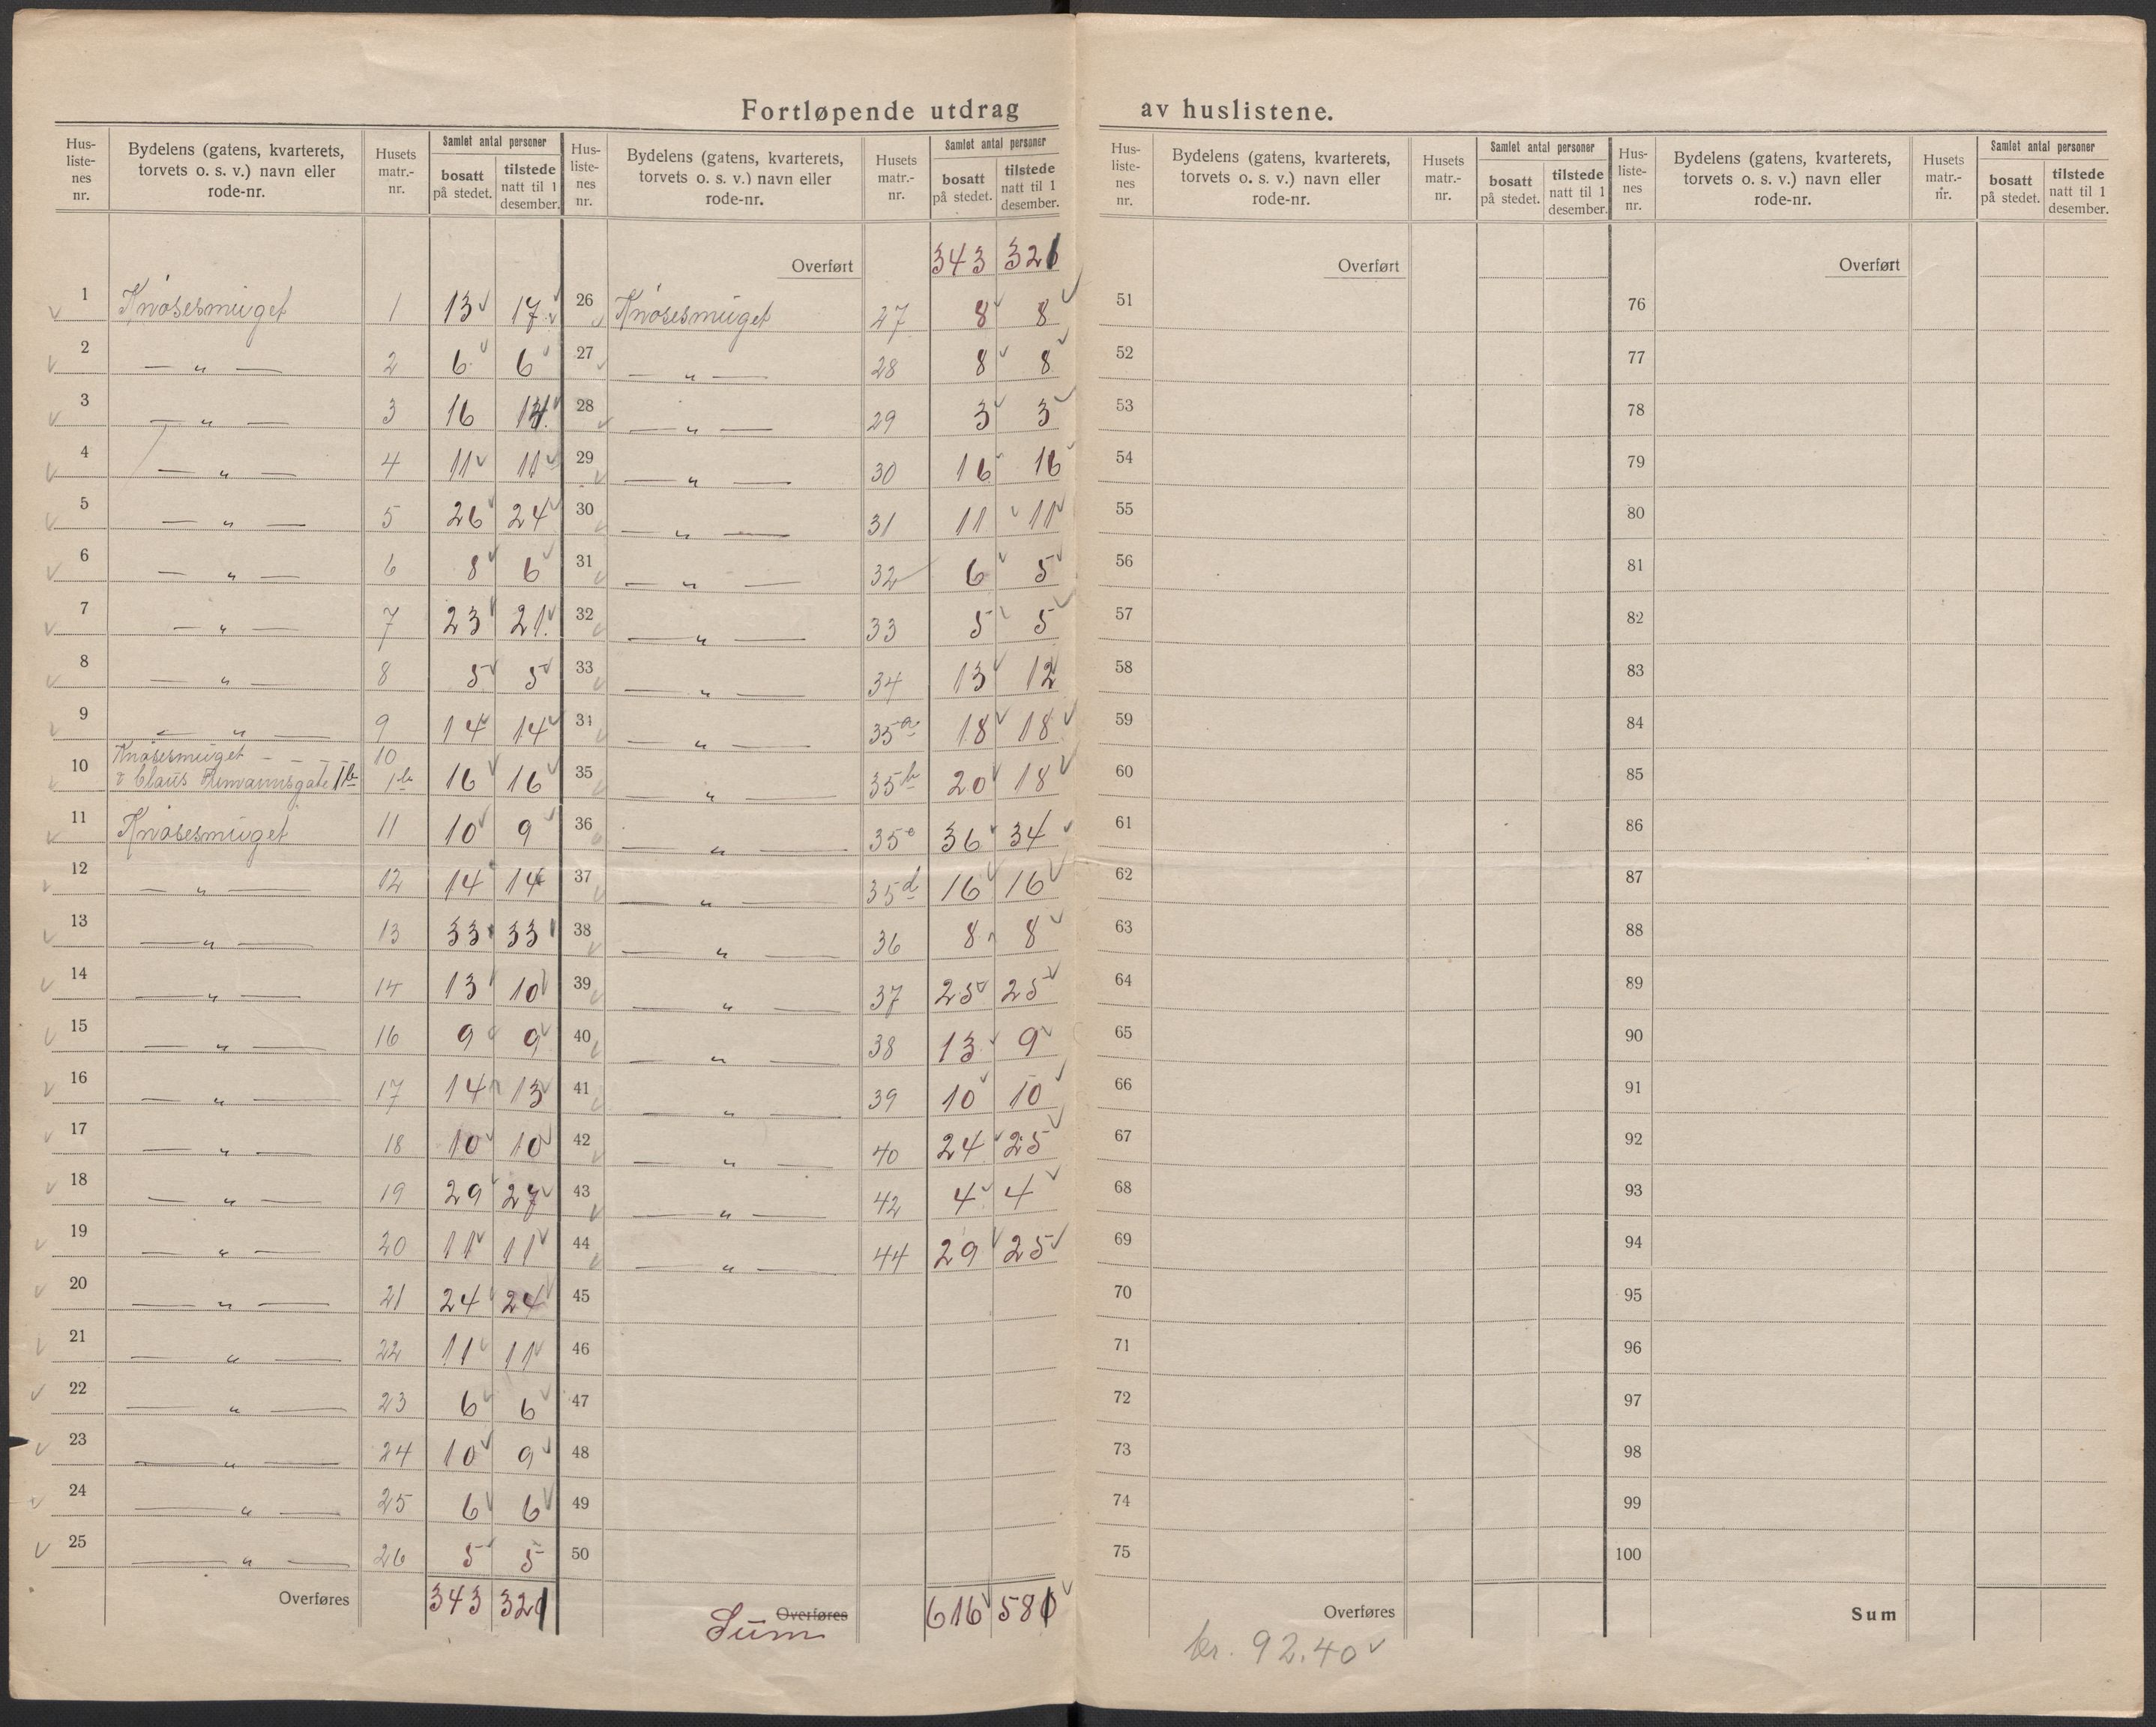 Fortløpende utdrag av huslistene.
Hus-listenes nr. Bydelens (gatens, kvarterets, torvets o. s. v.) navn eller rode-nr. Husets matr.-nr. Samlet antal personer bosatt på stedet. tilstede natt til 1 desember.
1 Knøsesmuget 1 13 17
2 — „ — 2 6 6
3 — „ — 3 16
4 — „ — 4 11 11
5 — „ — 5 26 24
6 — „ — 6 8 6
7 — „ — 7 23 21
8 — „ — 8 5 5
9 — „ — 9 14 14
10 Knøsesmuget — — — 10
Claus gate 1b 1b 16 16
11 Knøsesmuget 11 10 9
12 — „ — 12 14 14
13 — „ — 13 33 33
14 — „ — 14 13 10
15 — „ — 16 9 9
16 — „ — 17 14 13
17 — „ — 18 10 10
18 — „ — 19 29 27
19 — „ — 20 11 11
20 — „ — 21 24 24
21 — „ — 22 11 11
22 — „ — 23 6 6
23 — „ — 24 10 9
24 — „ — 25 6 6
25 — „ — 26 5 5
Overføres 343 321
Hus-listenes nr. Bydelens (gatens, kvarterets, torvets o. s. v.) navn eller rode-nr. Husets matr.-nr. Samlet antal personer bosatt på stedet. tilstede natt til 1 desember.
Overført 343 321
26 Knøsesmuget 27 8 8
27 — „ — 28 8 8
28 — „ — 29 3 3
29 — „ — 30 16 16
30 — „ — 31 11 11
31 — „ — 32 6 5
32 — „ — 33 5 5
33 — „ — 34 13 12
34 — „ — 35a 18 18
35 — „ — 35b 20 18
36 — „ — 35c 36 34
37 — „ — 35d 16 16
38 — „ — 36 8 8
39 — „ — 37 25 25
40 — „ — 38 13 9
41 — „ — 39 10 10
42 — „ — 40 24 25
43 — „ — 42 4 4
44 — „ — 44 29 25
45
46
47
48
49
50
Overføres
Sum 616 581
Hus-listenes nr. Bydelens (gatens, kvarterets, torvets o. s. v.) navn eller rode-nr. Husets matr.-nr. Samlet antal personer bosatt på stedet. tilstede natt til 1 desember.
Overført
51
52
53
54
55
56
57
58
59
60
61
62
63
64
65
66
67
68
69
70
71
72
73
74
75
Overføres
kr. 92.40
Hus-listenes nr. Bydelens (gatens, kvarterets, torvets o. s. v.) navn eller rode-nr. Husets matr.-nr. Samlet antal personer bosatt på stedet. tilstede natt til 1 desember.
Overført
76
77
78
79
80
81
82
83
84
85
86
87
88
89
90
91
92
93
94
95
96
97
98
99
100
Sum